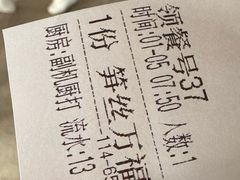 领餐号37
时间:01-05 07:50 人数:1
1份 笋丝万福
114.65
厨房:副机厨打 流水:13